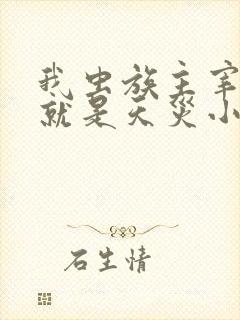 我虫族主宰
就是天灾小
石生情